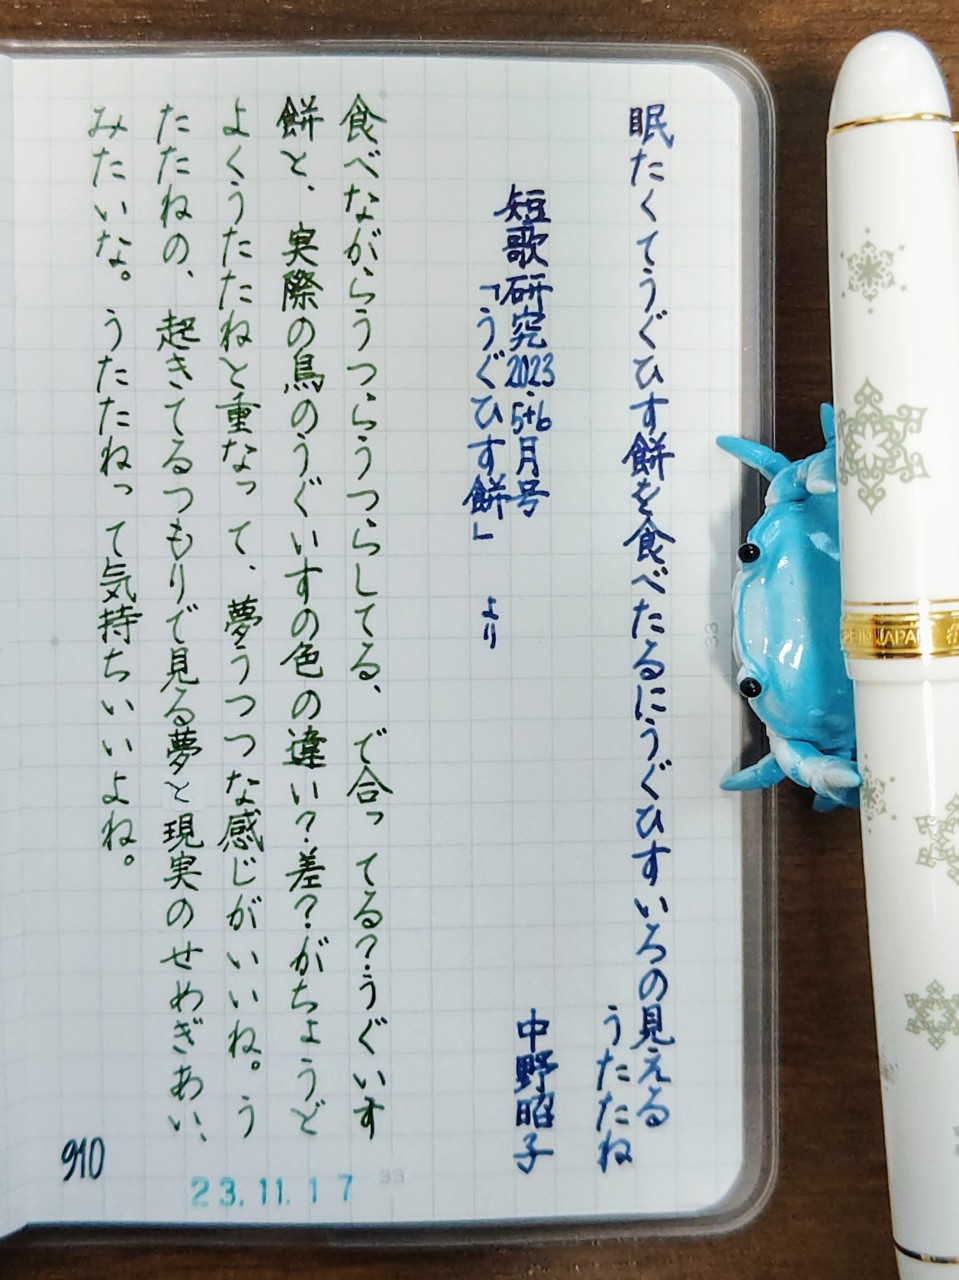 眠たくてうぐひす餅を食べたるにうぐひすいろの見える
うたたね
短歌研究2023.5+6月号
「うぐひす餅」 より
中野昭子
食べながらうつらうつらしてる、で合ってる?うぐいす
餅と、実際の鳥のうぐいすの色の違い?差?がちょうど
よくうたたねと重なって、夢うつつな感じがいいね。う
たたねの、起きてるつもりで見る夢と現実のせめぎあい、
みたいな。うたたねって気持ちいいよね。
910
23.11.17
33
33
MADE IN JAPAN